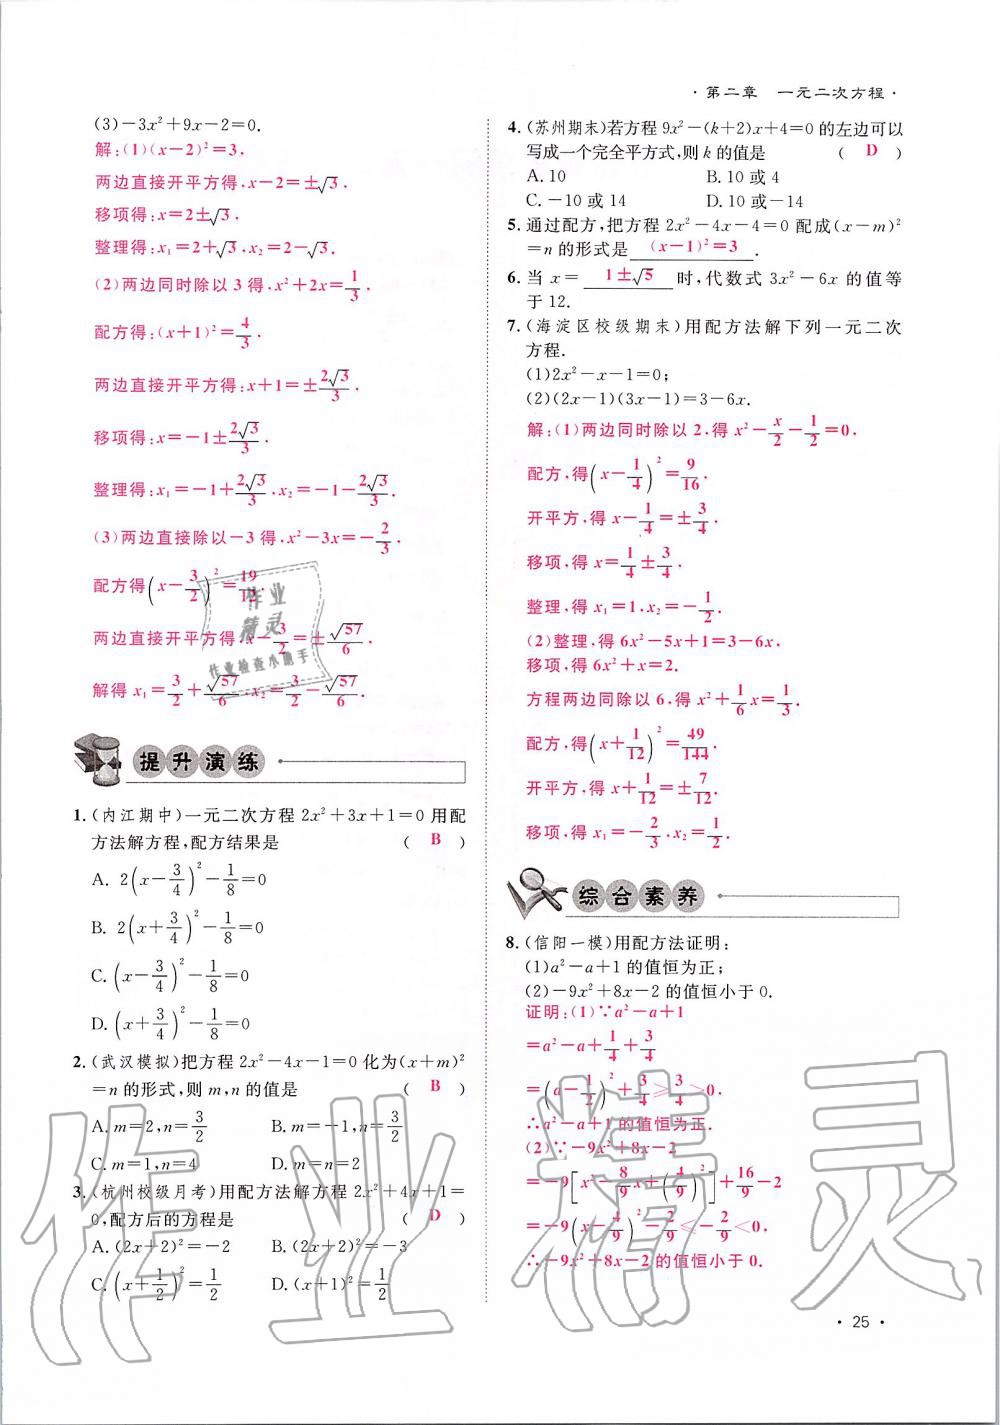 · 第二章　一元二次方程 ·
(3)-3x²+9x-2=0.
解:(1)(x-2)²=3.
两边直接开平方得,x-2=±√3.
移项得:x=2±√3.
整理得:x₁=2+√3,x₂=2-√3.
(2)两边同时除以3得,x²+2x=1/3.
配方得:(x+1)²=4/3.
两边直接开平方得:x+1=±2√3/3.
移项得:x=-1±2√3/3.
整理得:x₁=-1+2√3/3,x₂=-1-2√3/3.
(3)两边直接除以-3得,x²-3x=-2/3.
配方得(x-3/2)²=19/12.
两边直接开平方得x-3/2=±√57/6.
解得x₁=3/2+√57/6,x₂=3/2-√57/6.
提升演练
1.(内江期中)一元二次方程2x²+3x+1=0用配
方法解方程,配方结果是 ( B )
A. 2(x-3/4)²-1/8=0
B. 2(x+3/4)²-1/8=0
C. (x-3/4)²-1/8=0
D. (x+3/4)²-1/8=0
2.(武汉模拟)把方程2x²-4x-1=0化为(x+m)²
=n的形式,则m,n的值是 ( B )
A. m=2,n=3/2 B. m=-1,n=3/2
C. m=1,n=4 D. m=n=2
3.(杭州校级月考)用配方法解方程2x²+4x+1=
0,配方后的方程是 ( D )
A. (2x+2)²=-2 B. (2x+2)²=-3
C. (x+1/2)²=1/2 D. (x+1)²=1/2
4.(苏州期末)若方程9x²-(k+2)x+4=0的左边可以
写成一个完全平方式,则k的值是 ( D )
A. 10 B. 10或4
C. -10或14 D. 10或-14
5.通过配方,把方程2x²-4x-4=0配成(x-m)²
=n的形式是 (x-1)²=3 .
6.当x= 1±√5 时,代数式3x²-6x的值等
于12.
7.(海淀区校级期末)用配方法解下列一元二次
方程.
(1)2x²-x-1=0;
(2)(2x-1)(3x-1)=3-6x.
解:(1)两边同时除以2,得x²-x/2-1/2=0.
配方,得(x-1/4)²=9/16.
开平方,得x-1/4=±3/4.
移项,得x=1/4±3/4.
整理,得x₁=1,x₂=-1/2.
(2)整理,得6x²-5x+1=3-6x.
移项,得6x²+x=2.
方程两边同除以6,得x²+1/6x=1/3.
配方,得(x+1/12)²=49/144.
开平方,得x+1/12=±7/12.
移项,得x₁=-2/3,x₂=1/2.
综合素养
8.(信阳一模)用配方法证明:
(1)a²-a+1的值恒为正;
(2)-9x²+8x-2的值恒小于0.
证明:(1)∵a²-a+1
=a²-a+1/4+3/4
=(a-1/2)²+3/4≥3/4>0.
∴a²-a+1的值恒为正.
(2)∵-9x²+8x-2
=-9[x²-8/9x+(4/9)²]+16/9-2
=-9(x-4/9)²-2/9≤-2/9<0.
∴-9x²+8x-2的值恒小于0.
· 25 ·
作业
精灵
作业检查小助手
作业精灵